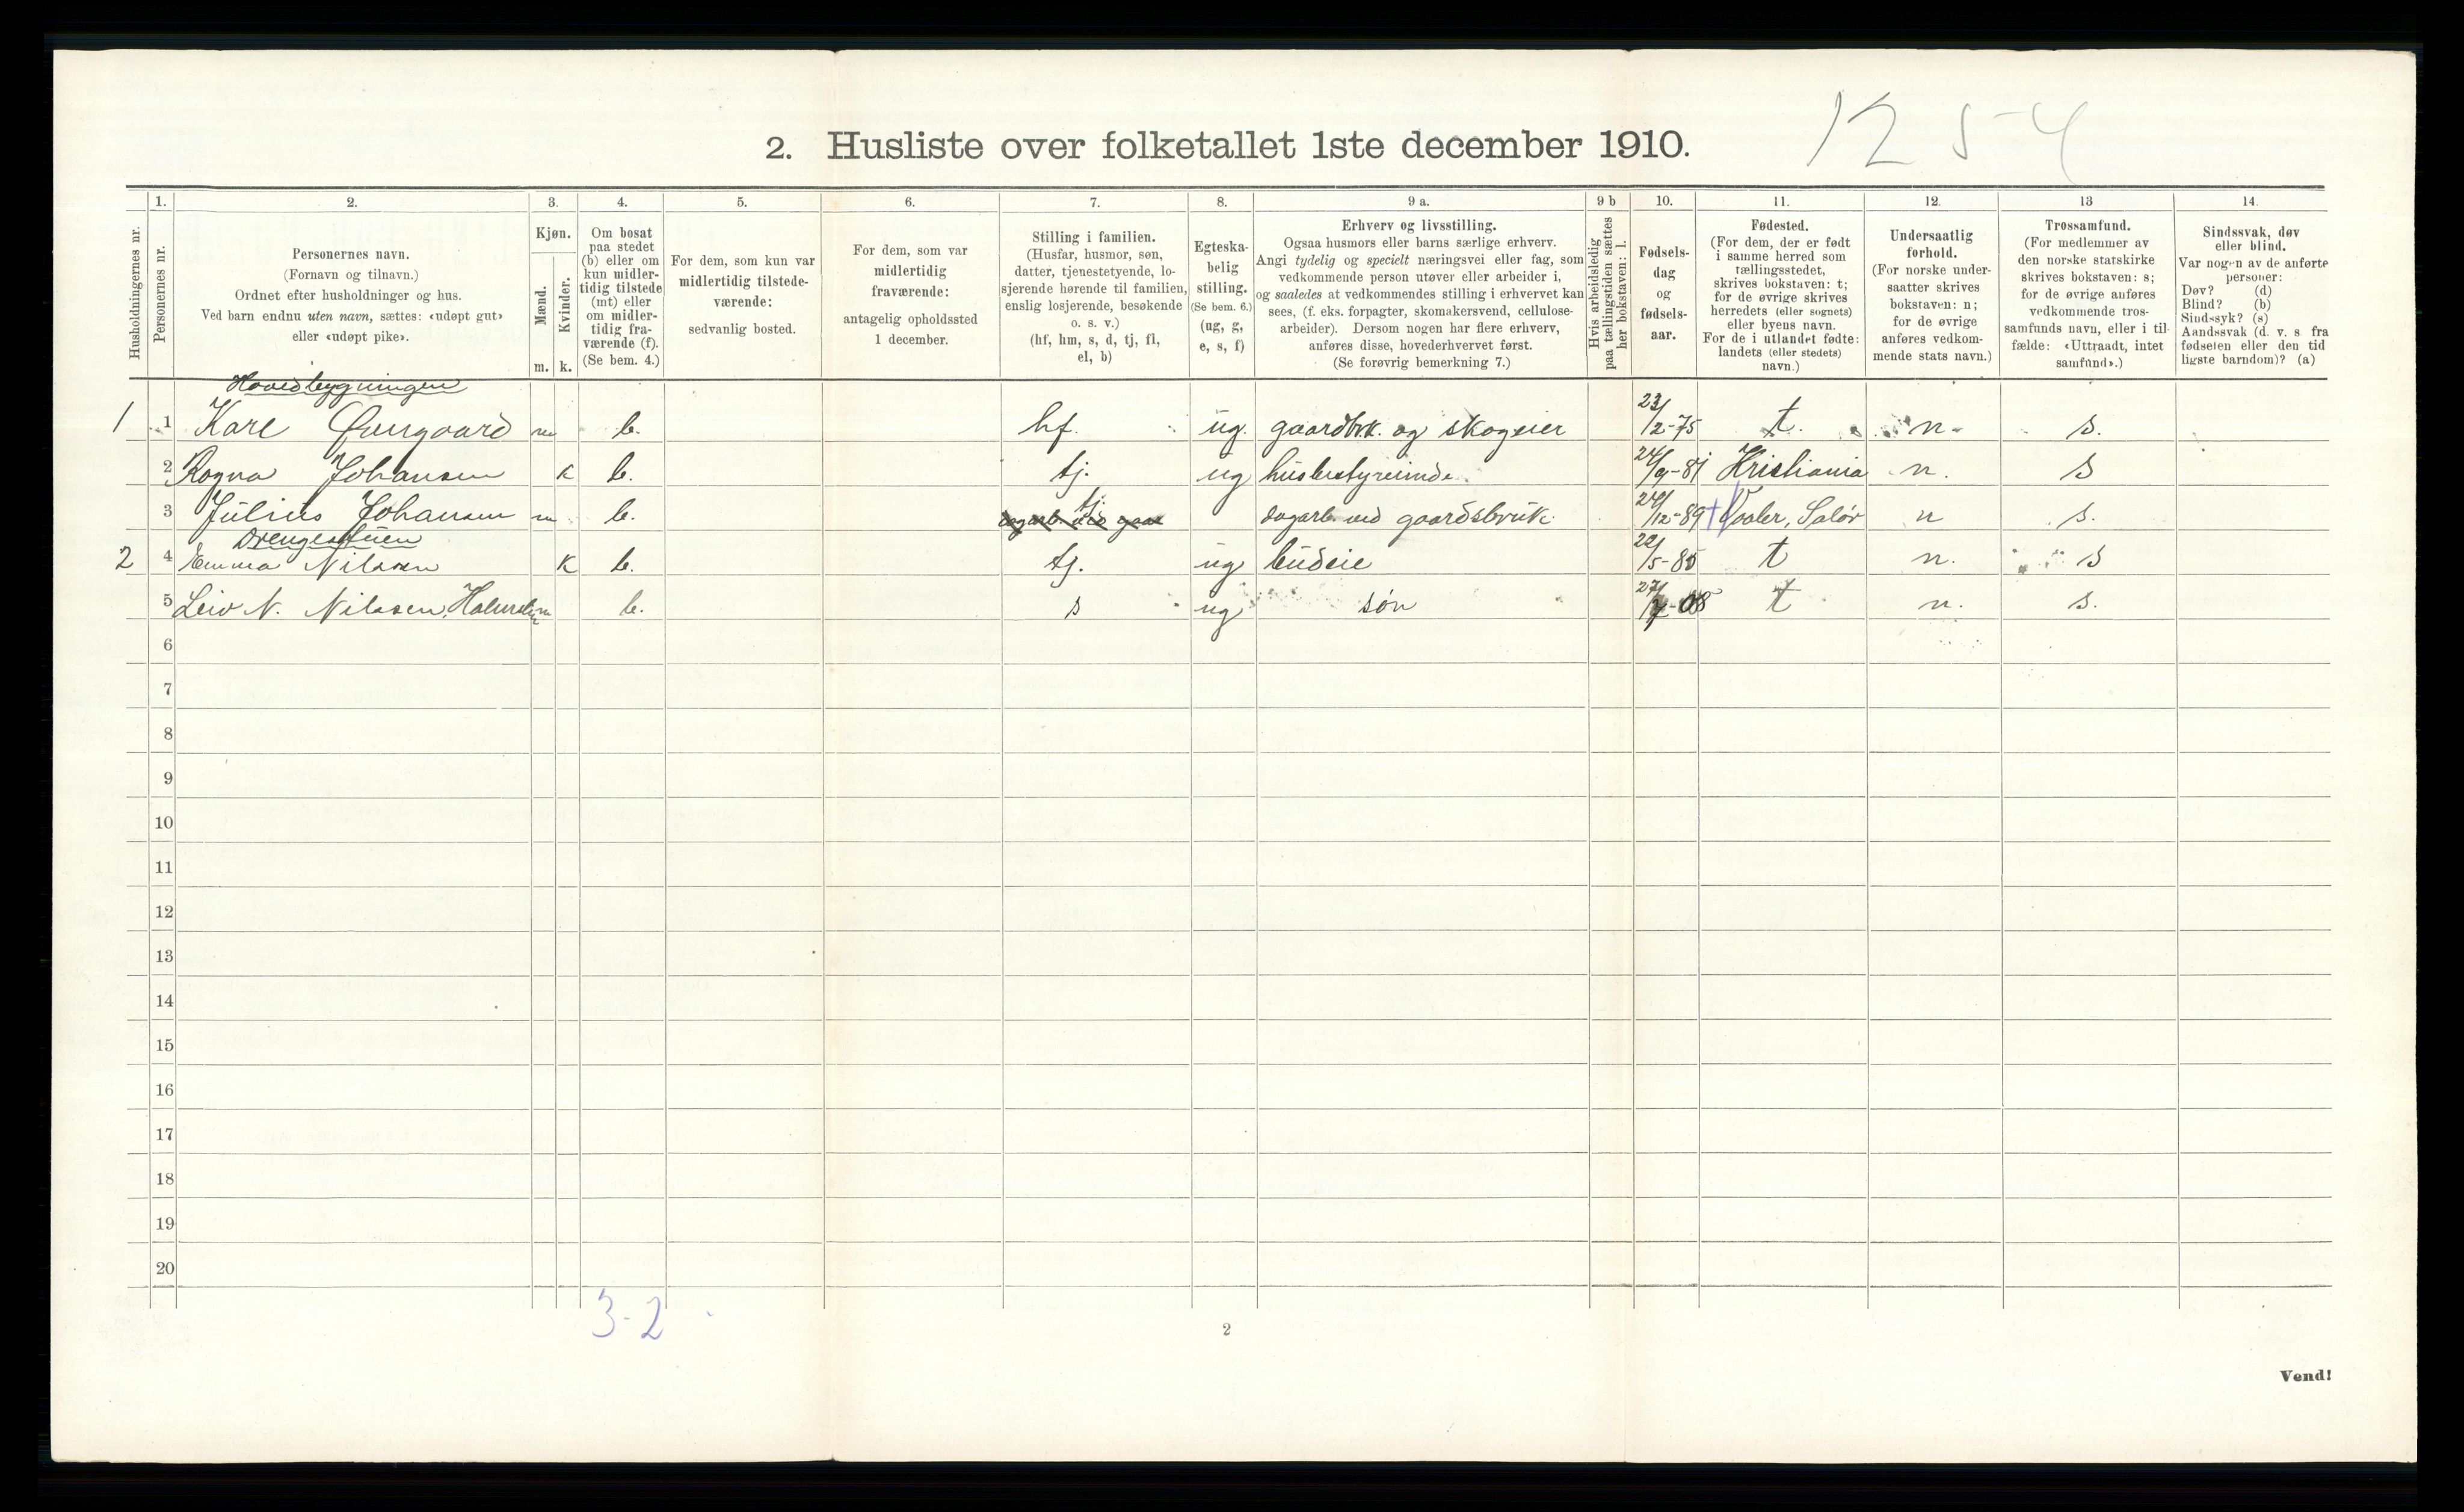 1254
2. Husliste over folketallet 1ste december 1910.
Husholdningernes nr.
1.
Personernes nr.
2.
Personernes navn.
(Fornavn og tilnavn.)
Ordnet efter husholdninger og hus.
Ved barn endnu uten navn, sættes: «udøpt gut»
eller «udøpt pike».
3.
Kjøn.
Mænd.
m.
Kvinder.
k.
4.
Om bosat
paa stedet
(b) eller om
kun midler-
tidig tilstede
(mt) eller
om midler-
tidig fra-
værende (f).
(Se bem. 4.)
5.
For dem, som kun var
midlertidig tilstede-
værende:
sedvanlig bosted.
6.
For dem, som var
midlertidig
fraværende:
antagelig opholdssted
1 december.
7.
Stilling i familien.
(Husfar, husmor, søn,
datter, tjenestetyende, lo-
sjerende hørende til familien,
enslig losjerende, besøkende
o. s. v.)
(hf, hm, s, d, tj, fl,
el, b)
8.
Egteska-
belig
stilling.
(Se bem. 6.)
(ug, g,
e, s, f)
9 a.
Erhverv og livsstilling.
Ogsaa husmors eller barns særlige erhverv.
Angi tydelig og specielt næringsvei eller fag, som
vedkommende person utøver eller arbeider i,
og saaledes at vedkommendes stilling i erhvervet kan
sees, (f. eks. forpagter, skomakersvend, cellulose-
arbeider). Dersom nogen har flere erhverv,
anføres disse, hovederhvervet først.
(Se forøvrig bemerkning 7.)
9 b
Hvis arbeidsledig
paa tællingstiden sættes
her bokstaven: l.
10.
Fødsels-
dag
og
fødsels-
aar.
11.
Fødested.
(For dem, der er født
i samme herred som
tællingsstedet,
skrives bokstaven: t;
for de øvrige skrives
herredets (eller sognets)
eller byens navn.
For de i utlandet fødte:
landets (eller stedets)
navn.)
12.
Undersaatlig
forhold.
(For norske under-
saatter skrives
bokstaven: n;
for de øvrige
anføres vedkom-
mende stats navn.)
13
Trossamfund.
(For medlemmer av
den norske statskirke
skrives bokstaven: s;
for de øvrige anføres
vedkommende tros-
samfunds navn, eller i til-
fælde: «Uttraadt, intet
samfund».)
14.
Sindssvak, døv
eller blind.
Var nogen av de anførte
personer:
Døv? (d)
Blind? (b)
Sindssyk? (s)
Aandssvak (d. v. s. fra
fødselen eller den tid
ligste barndom)? (a)
Hovedbygningen
1 1 Karl m b. hf. ug. gaardbrk. og skogeier 23/2-75 t. n. s.
2 Ragna Johansen k b. tj. ug husbestyrerinde. 24/9-81 Kristiania n. s
3 Julius Johansen m b. tj. dagarb. ved gaardsbruk 24/12-89 Vaaler, Solør n s.
Drengestuen
2 4 Emma Nilssen k b. tj. ug budeie 22/5-85 t n. s
5 Leiv N. Nilssen m b. s ug søn 27/7-08 t n. s.
6
7
8
9
10
11
12
13
14
15
16
17
18
19
20
3-2
2
Vend!